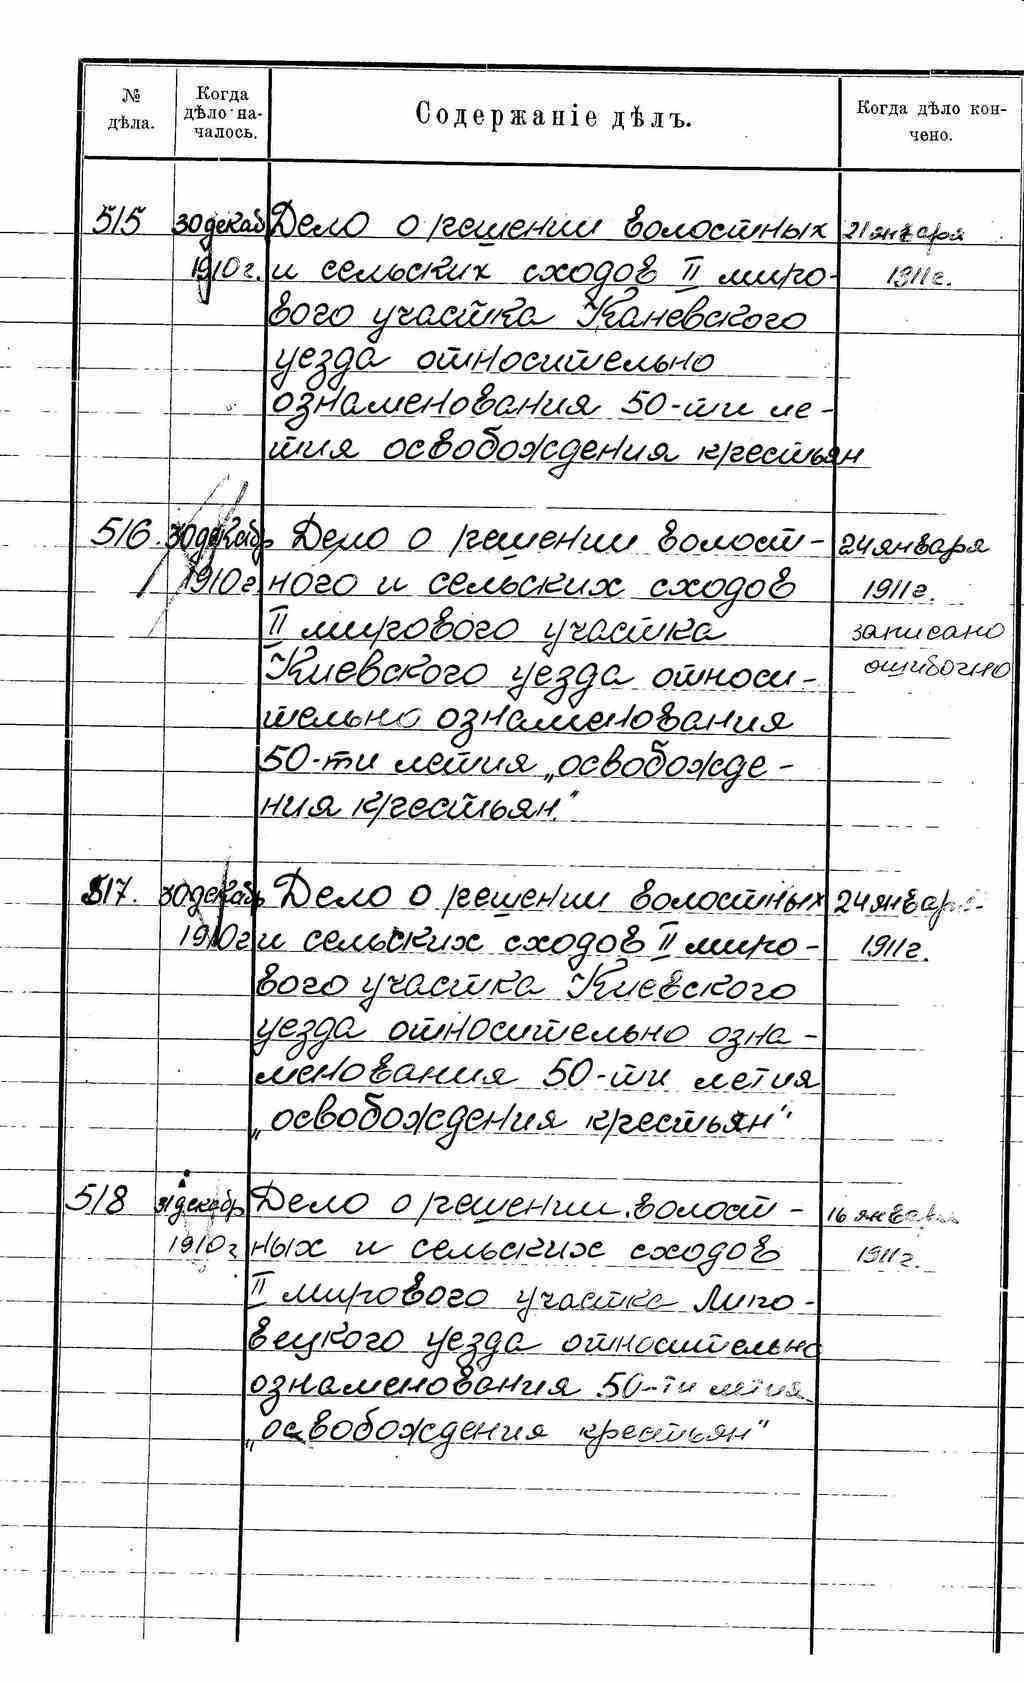 № дѣла.
Когда дѣло на-
чалось.
Содержаніе дѣлъ.
Когда дѣло кон-
чено.
515 30 декаб Дело о решении волостных 21 января
1910 г. и сельских сходов II миро- 1911 г.
вого участка Каневского
уезда относительно
ознаменования 50-ти ле-
тия освобождения крестьян
516. 30 декабр Дело о решении волост- 24 января
1910 г. ного и сельских сходов 1911 г.
II мирового участка записано
Киевского уезда относи- ошибочно
тельно ознаменования
50-ти летия „освобожде-
ния крестьян."
517. 30 декабр Дело о решении волостных 24 января
1910 г и сельских сходов II миро- 1911 г.
вого участка Киевского
уезда относительно озна-
менования 50-ти летия
„освобождения крестьян"
518 31 декабр Дело о решении волост- 16 января
1910 г ных и сельских сходов 1911 г.
II мирового участка Липо-
вецкого уезда относительно
ознаменования 50-ти летия
„освобождения крестьян"